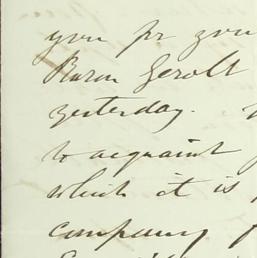 you pr you
Baron Gerolt
yesterday.
to acquaint
which it is
company